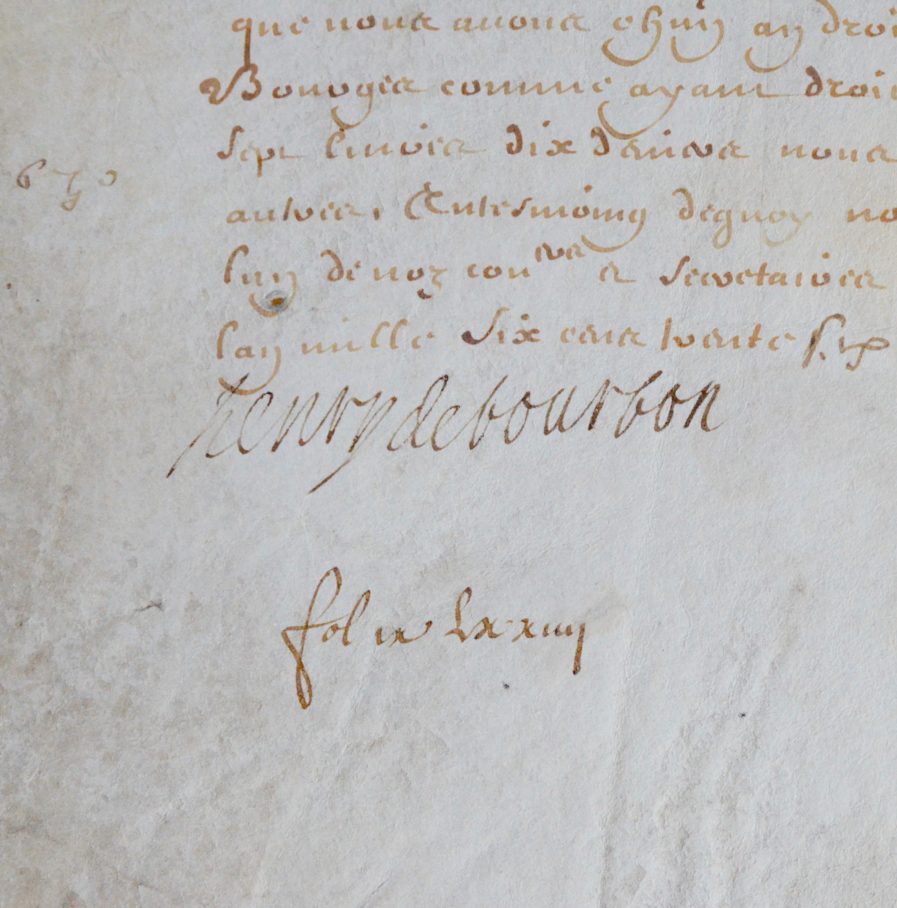 que nous avons
comme ayant droit
sept livres dix deniers nous
autres, Entesmoing dequoy no
de noz con^ers & secretaires
lan mille six cens trente six
henry de bourbon
fol ix lxxiiij